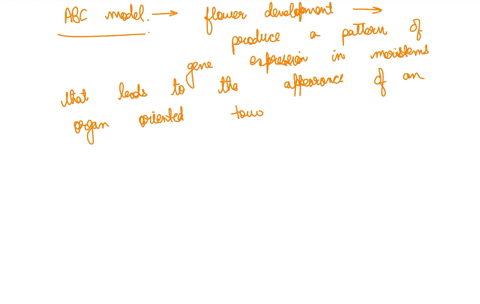 ABC model. → flower development →
produce a pattern of
gene expression in meristems
that leads to the appearance of an
organ oriented towa